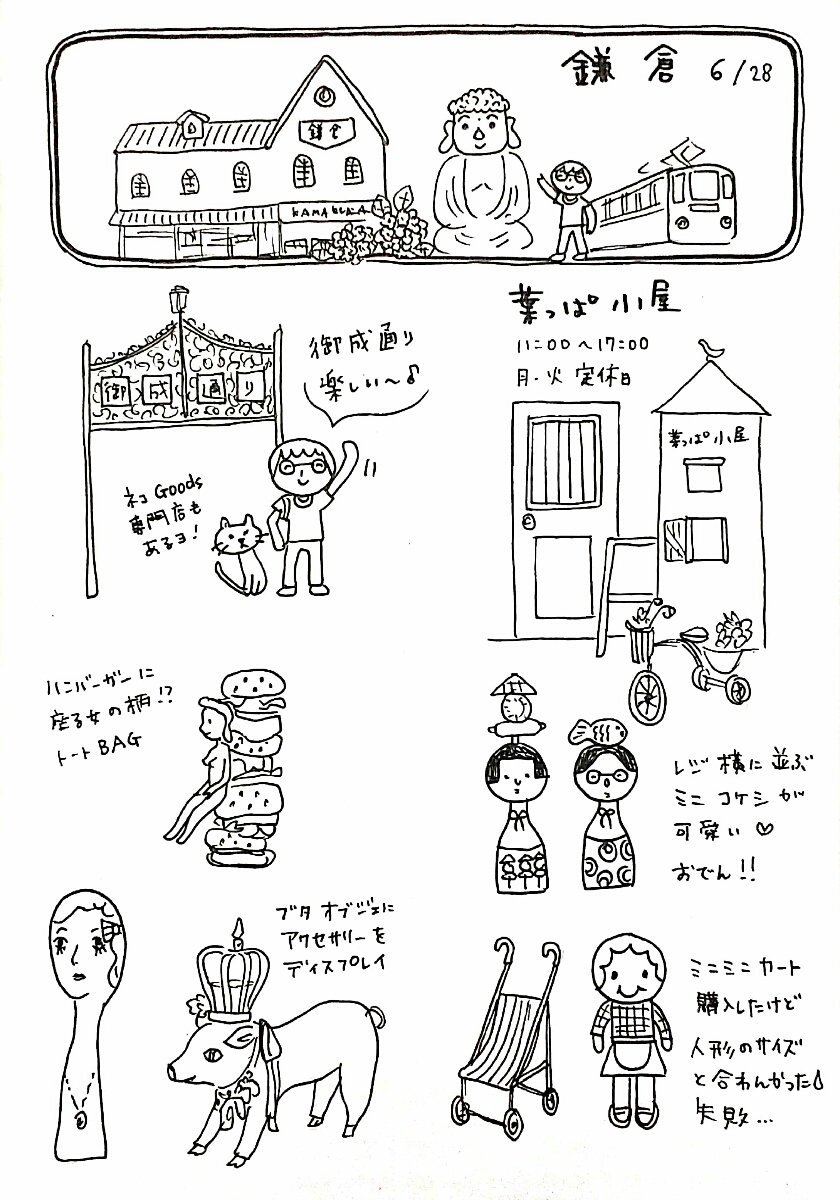 鎌倉 6/28
鎌倉
KAMAKURA
御成通り
御成通り
楽しい〜♪
ネコGoods
専門店も
あるヨ!
葉っぱ小屋
11:00〜17:00
月・火 定休日
葉っぱ小屋
ハンバーガーに
座る女の柄!?
トートBAG
レジ横に並ぶ
ミニコケシが
可愛い♡
おでん!!
ブタオブジェに
アクセサリーを
ディスプレイ
ミニミニカート
購入したけど
人形のサイズ
と合わんかった
失敗...